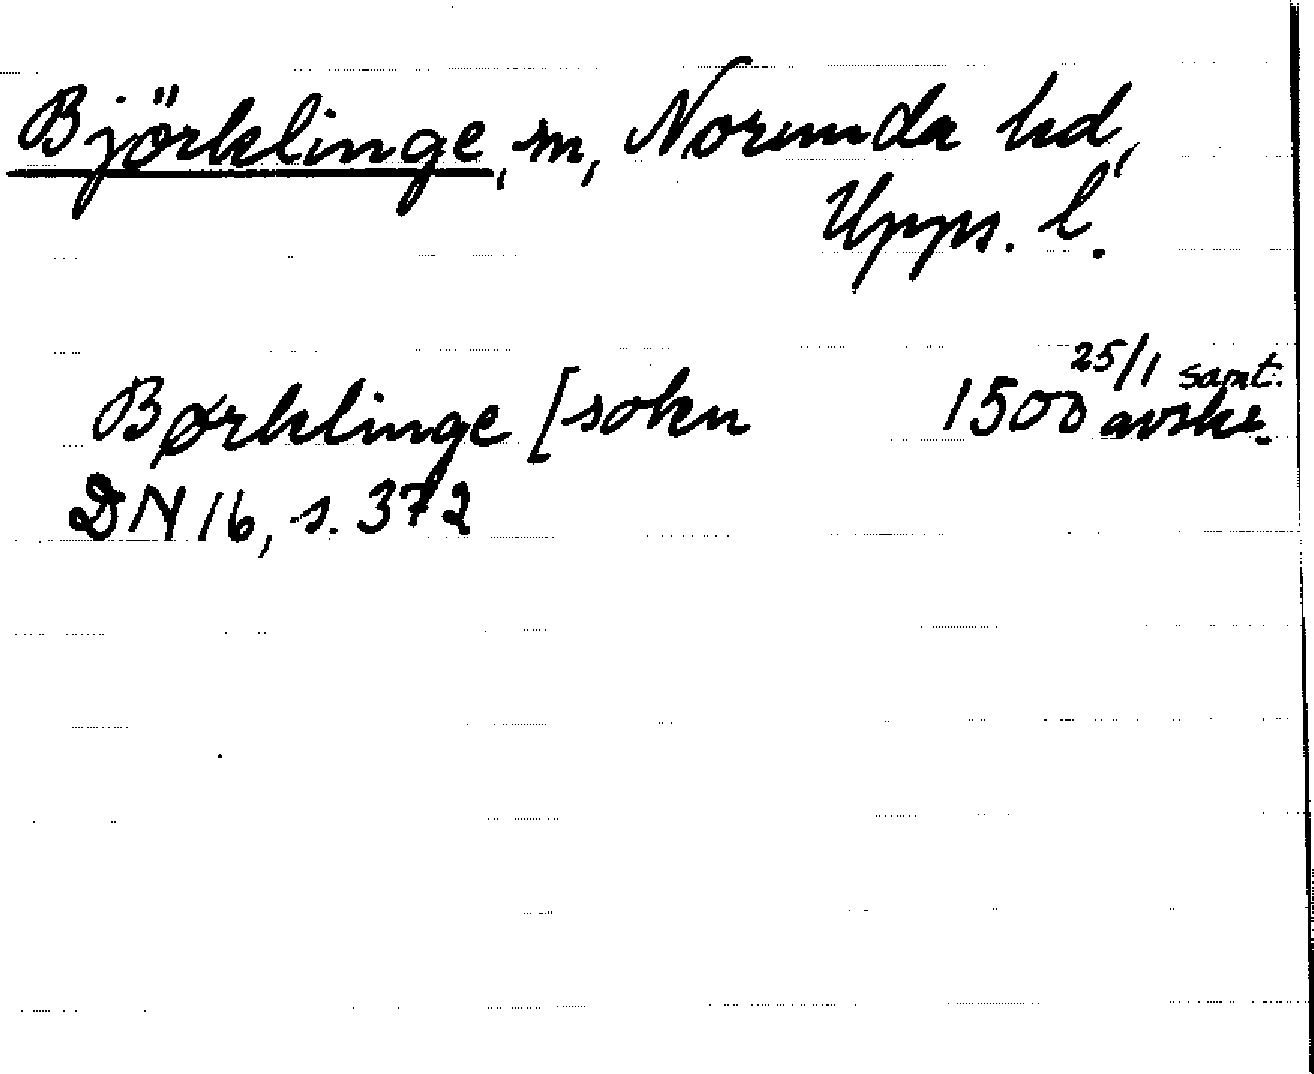 Björklinge, sn, Norunda hd,
Upps. l.
Børklinge [sokn 1500 25/1 samt. avskr.
DN 16, s. 372